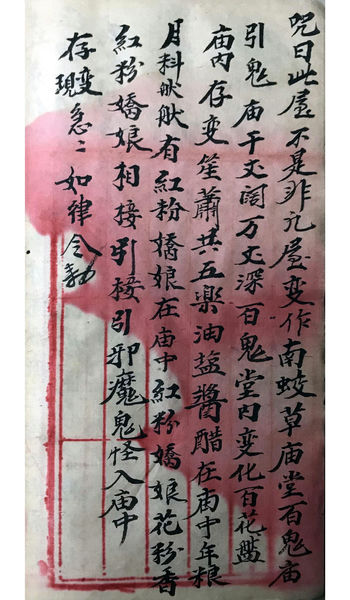 咒曰此屋不是非凡屋变作南蛟草庙堂百鬼庙
引鬼庙千丈阔万丈深百鬼堂内变化百花盘
庙内存变笙蕭共五樂油盐醬醋在庙中年粮
月料有紅粉嬌娘在庙中紅粉嬌娘花粉香
紅粉嬌娘相接引接引邪魔鬼怪入庙中
存变急〻如律令勅
現